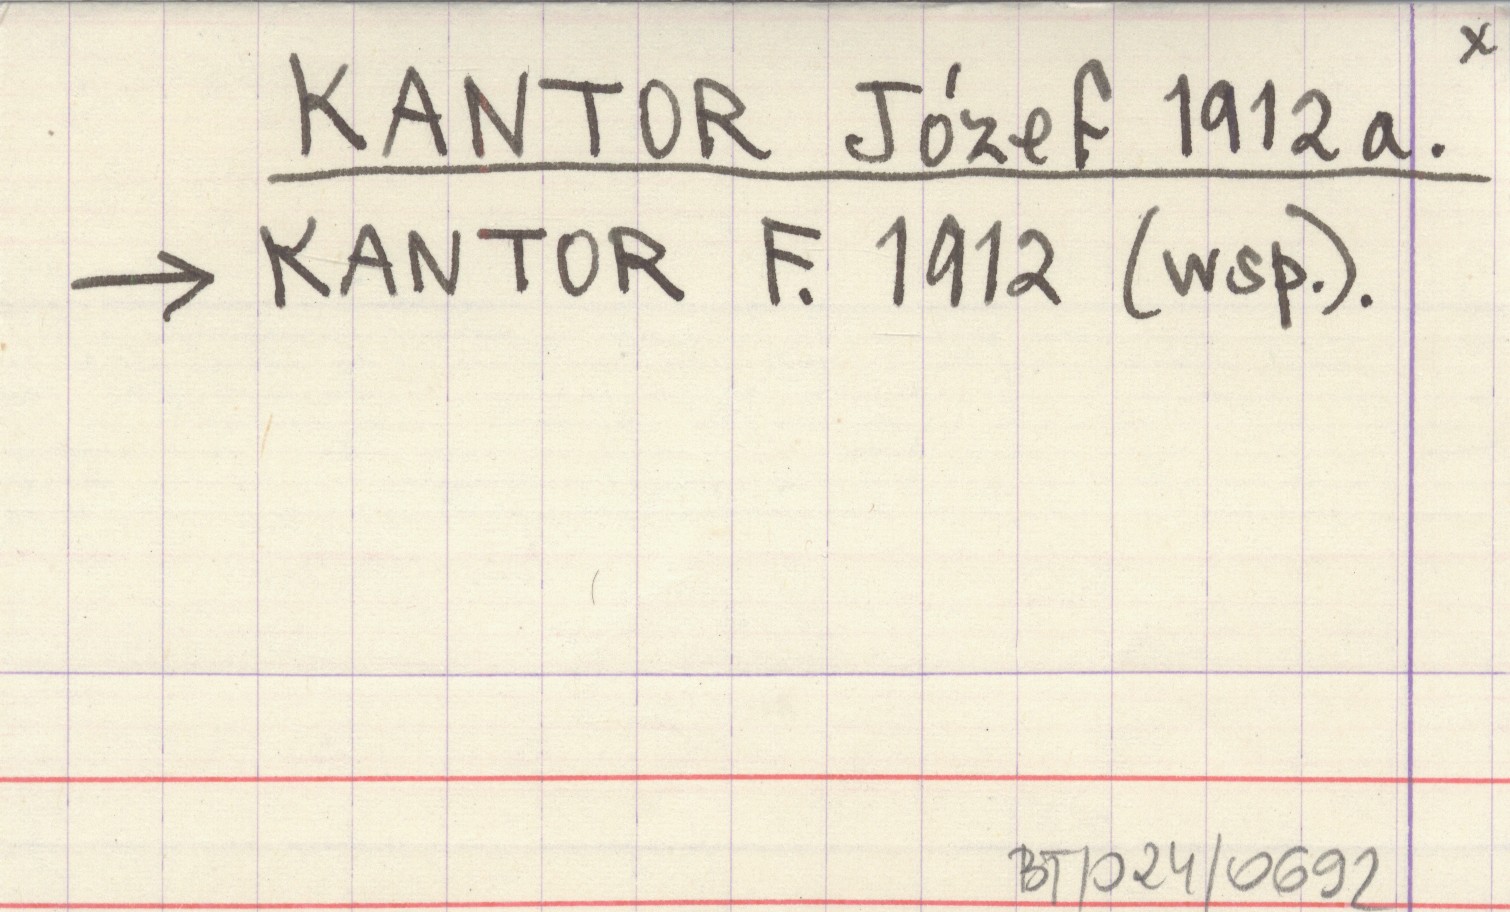 x
KANTOR Józef 1912a.
→ KANTOR F. 1912 (wsp.).
BT/024/0692